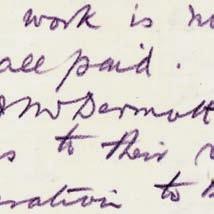 work is no
all paid.
McDermott
s to their
eration to